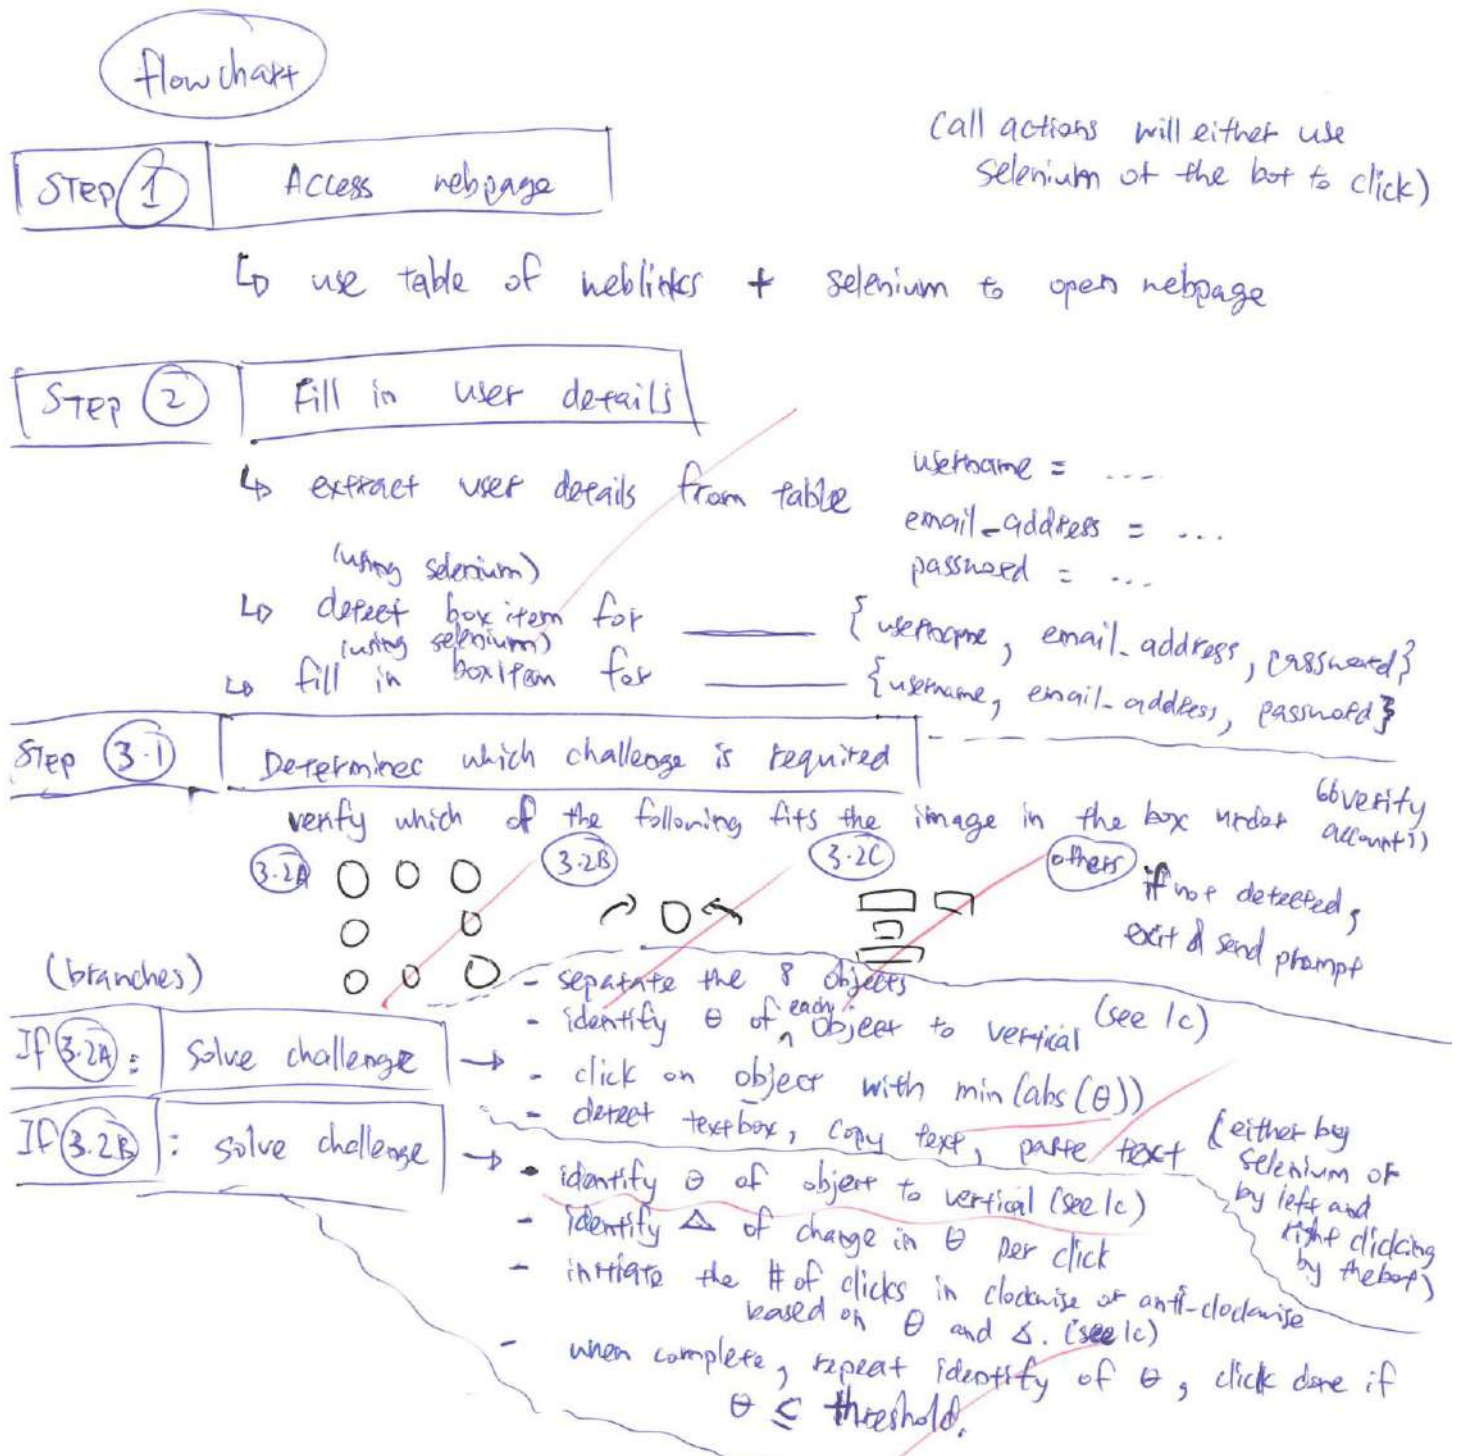 flowchart
(all actions will either use
selenium or the bot to click)
STEP 1 Access webpage
↳ use table of weblinks + selenium to open webpage
STEP 2 Fill in user details
↳ extract user details from table
username = ....
email_address = ...
password = ...
(using selenium)
↳ detect box item for ____ {username, email_address, password}
(using selenium)
↳ fill in box item for ____ {username, email_address, password}
Step 3.1 Determines which challenge is required
verify which of the following fits the image in the box under "verify account"
3.2A 3.2B 3.2C others
if not detected,
exit & send prompt
(branches)
If 3.2A : solve challenge →
- separate the 8 objects
- identify θ of each object to vertical (see 1c)
- click on object with min(abs(θ))
- detect textbox, copy text, paste text (either by
selenium or
by left and
right clicking
by the bot)
If 3.2B : solve challenge →
- identify θ of object to vertical (see 1c)
- identify Δ of change in θ per click
- initiate the # of clicks in clockwise or anti-clockwise
based on θ and Δ. (see 1c)
- when complete, repeat identify of θ, click done if
θ ≤ threshold.